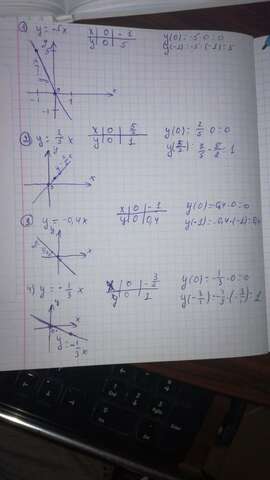 1) y = -5x
x | 0 | -1
y | 0 | 5
y(0) = -5·0 = 0
y(-1) = -5·(-1) = 5
2) y = 2/5 x
x | 0 | 5/2
y | 0 | 1
y(0) = 2/5·0 = 0
y(5/2) = 2/5·5/2 = 1
3) y = -0,4x
x | 0 | -1
y | 0 | 0,4
y(0) = -0,4·0 = 0
y(-1) = -0,4·(-1) = 0,4
4) y = -1/3 x
x | 0
y | 0 | 1
y(0) = -1/3·0 = 0
y = -1/3 x